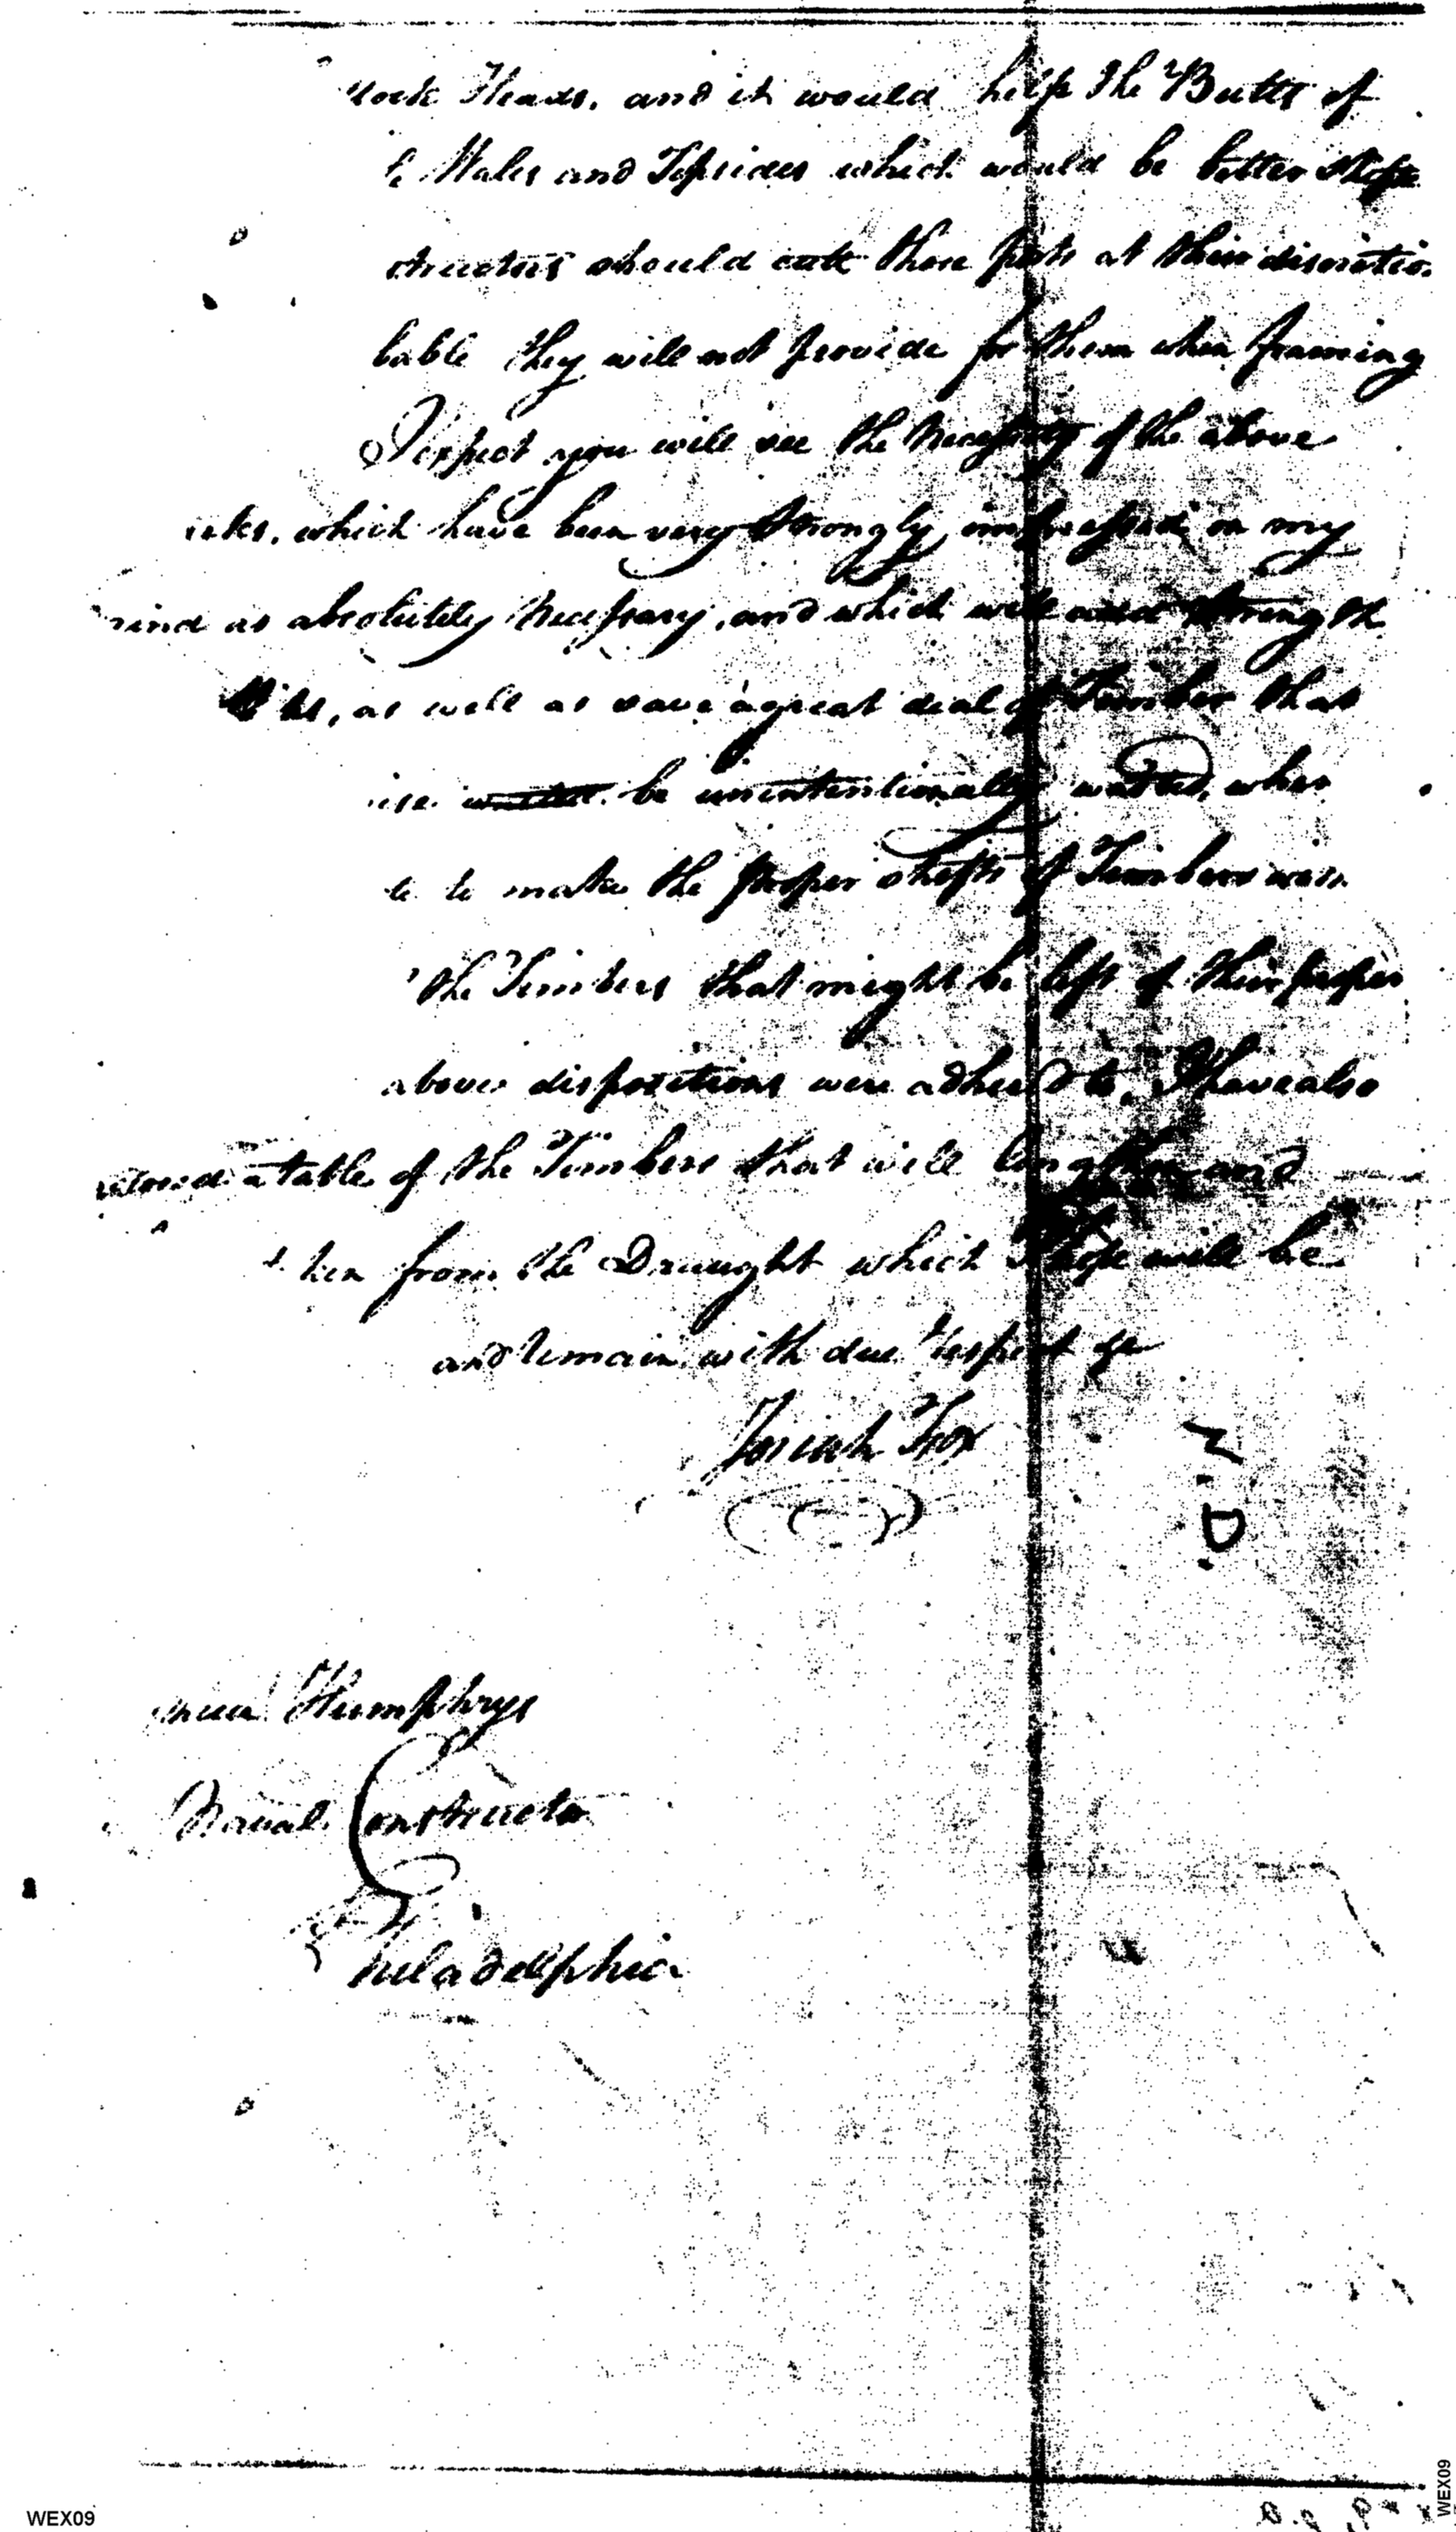 Heads. and it would help the Butts of
Wales and Topsides which would be better
structors should cutt those parts at their discretio
bable they will not provide for them when framing
I expect you will see the necessity of the above
which have been very strongly impressed on my
mind as absolutely necessary, and which will add strength
as well as save a great deal of Timber that
ise be unintentionally wasted, when
to make the proper shifts of Timbers were
the Timbers that might be left of their proper
above dispositions were adhered to. I have also
a table of the Timbers that will lengthen and
ken from the Draught which I hope will be
and remain with due respect &c
Josiah Fox
N.D.
Humphrys
Naval Constructor
Philadelphia
WEX09
WEX09